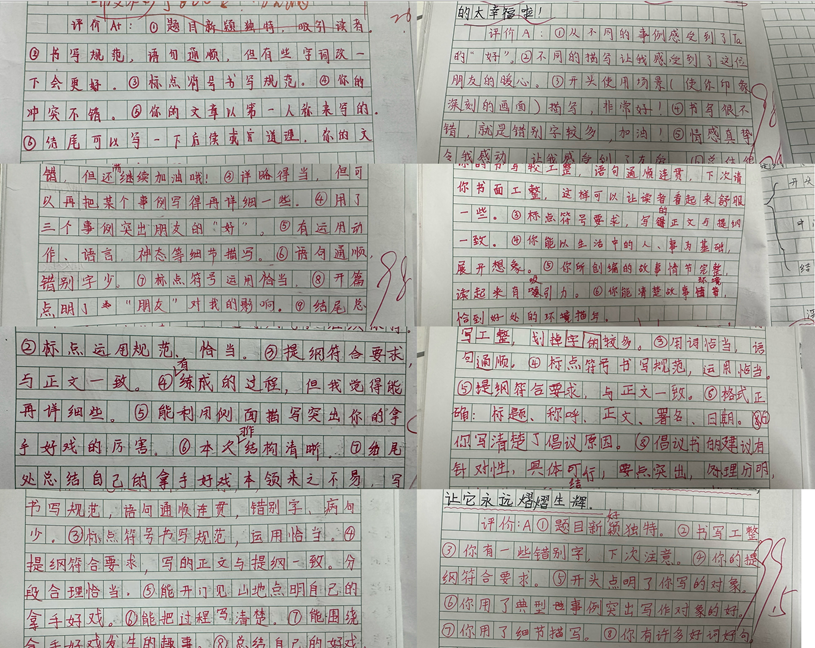 评价A+：①题目新颖独特，吸引读者。
②书写规范，语句通顺，但有些字词改一
下会更好。③标点符号书写规范。④你的
冲突不错。⑤你的文章以第一人称来写的。
⑥结尾可以写一下后续或者道理。你的文
的大幸福啦！
评价A：①从不同的事例感受到了Ta
的“好”。②不同的描写让我感受到了这位
朋友的暖心。③开头使用场景（使你印象
深刻的画面）描写，非常好！④书写很不
错，就是错别字较多，加油！⑤情感真挚
令我感动，让我感受到了
98
错，但还需继续加油哦！③详略得当，但可
以再把某个事例写得再详细一些。④用了
三个事例突出朋友的“好”，⑤有运用动
作、语言，神态等细节描写。⑥语句通顺，
错别字少。⑦标点符号运用恰当。⑧开篇
点明了“朋友”对我的影响。⑨结尾总
98
书写较工整，语句通顺连贯，下次请
你书面工整，这样可以让读者看起来舒服
一些。③标点符号要求，写的正文与提纲
一致。④你能以生活中的人、事为基础，
展开想象。⑤你所创编的故事情节完整，
读起来有吸引力。⑥你能清楚故事环境
恰到好处的环境描写。
②标点运用规范、恰当。③提纲符合要求，
与正文一致。④有练成的过程，但我觉得能
再详细些。⑤能利用侧面描写突出你的拿
手好戏的厉害。⑥本次作文结构清晰。⑦结尾
处总结自己的拿手好戏本领来之不易，写
写工整，划掉字的较多。③用词恰当，语
句通顺。④标点符号书写规范，运用恰当。
⑤提纲符合要求，与正文一致。⑥格式正
确：标题、称呼、正文、署名、日期。⑦
你写清楚了倡议原因。⑧倡议书的建议有
针对性，具体可行，要点突出，条理分明，
结
书写规范，语句通顺连贯，错别字、病句
少。③标点符号书写规范，运用恰当。④
提纲符合要求，写的正文与提纲一致。分
段合理恰当。⑤能开门见山地点明自己的
拿手好戏。⑥能把过程写清楚。⑦能围绕
拿手好戏发生的趣事。⑧总结自己的好戏
让它永远熠熠生辉。
评价：A①题目新颖好独特。②书写工整
③你有一些错别字，下次注意。④你的提
纲符合要求。⑤开头点明了你写的对象。
⑥你用了典型事例突出写作对象的好。
⑦你用了细节描写。⑧你有许多好词好句
99.5